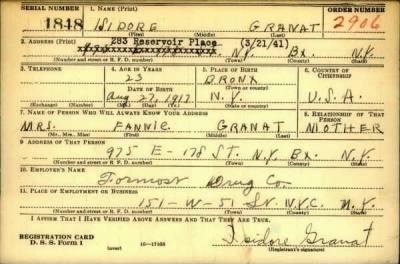 SERIAL NUMBER 1. NAME (Print) ORDER NUMBER
1818 ISIDORE GRANAT 2906
(First) (Middle) (Last)
2. ADDRESS (Print) 283 Reservoir Place (3/21/41)
N.Y. Bx. N.Y.
(Number and street or R. F. D. number) (Town) (County) (State)
3. TELEPHONE 4. AGE IN YEARS 5. PLACE OF BIRTH 6. COUNTRY OF CITIZENSHIP
23 BRONX
DATE OF BIRTH (Town or county)
Aug 27, 1917 N.Y. U.S.A.
(Exchange) (Number) (Mo.) (Day) (Yr.) (State or country)
7. NAME OF PERSON WHO WILL ALWAYS KNOW YOUR ADDRESS 8. RELATIONSHIP OF THAT PERSON
MRS. FANNIE GRANAT MOTHER
(Mr., Mrs., Miss) (First) (Middle) (Last)
9. ADDRESS OF THAT PERSON
975 E-178 ST. N.Y. Bx. N.Y.
(Number and street or R. F. D. number) (Town) (County) (State)
10. EMPLOYER'S NAME
Formost Drug Co.
11. PLACE OF EMPLOYMENT OR BUSINESS
151-W-51 St. N.Y.C. N.Y.
(Number and street or R. F. D. number) (Town) (County) (State)
I AFFIRM THAT I HAVE VERIFIED ABOVE ANSWERS AND THAT THEY ARE TRUE.
REGISTRATION CARD
D. S. S. Form 1 (over) 16—17105 Isidore Granat
(Registrant's signature)